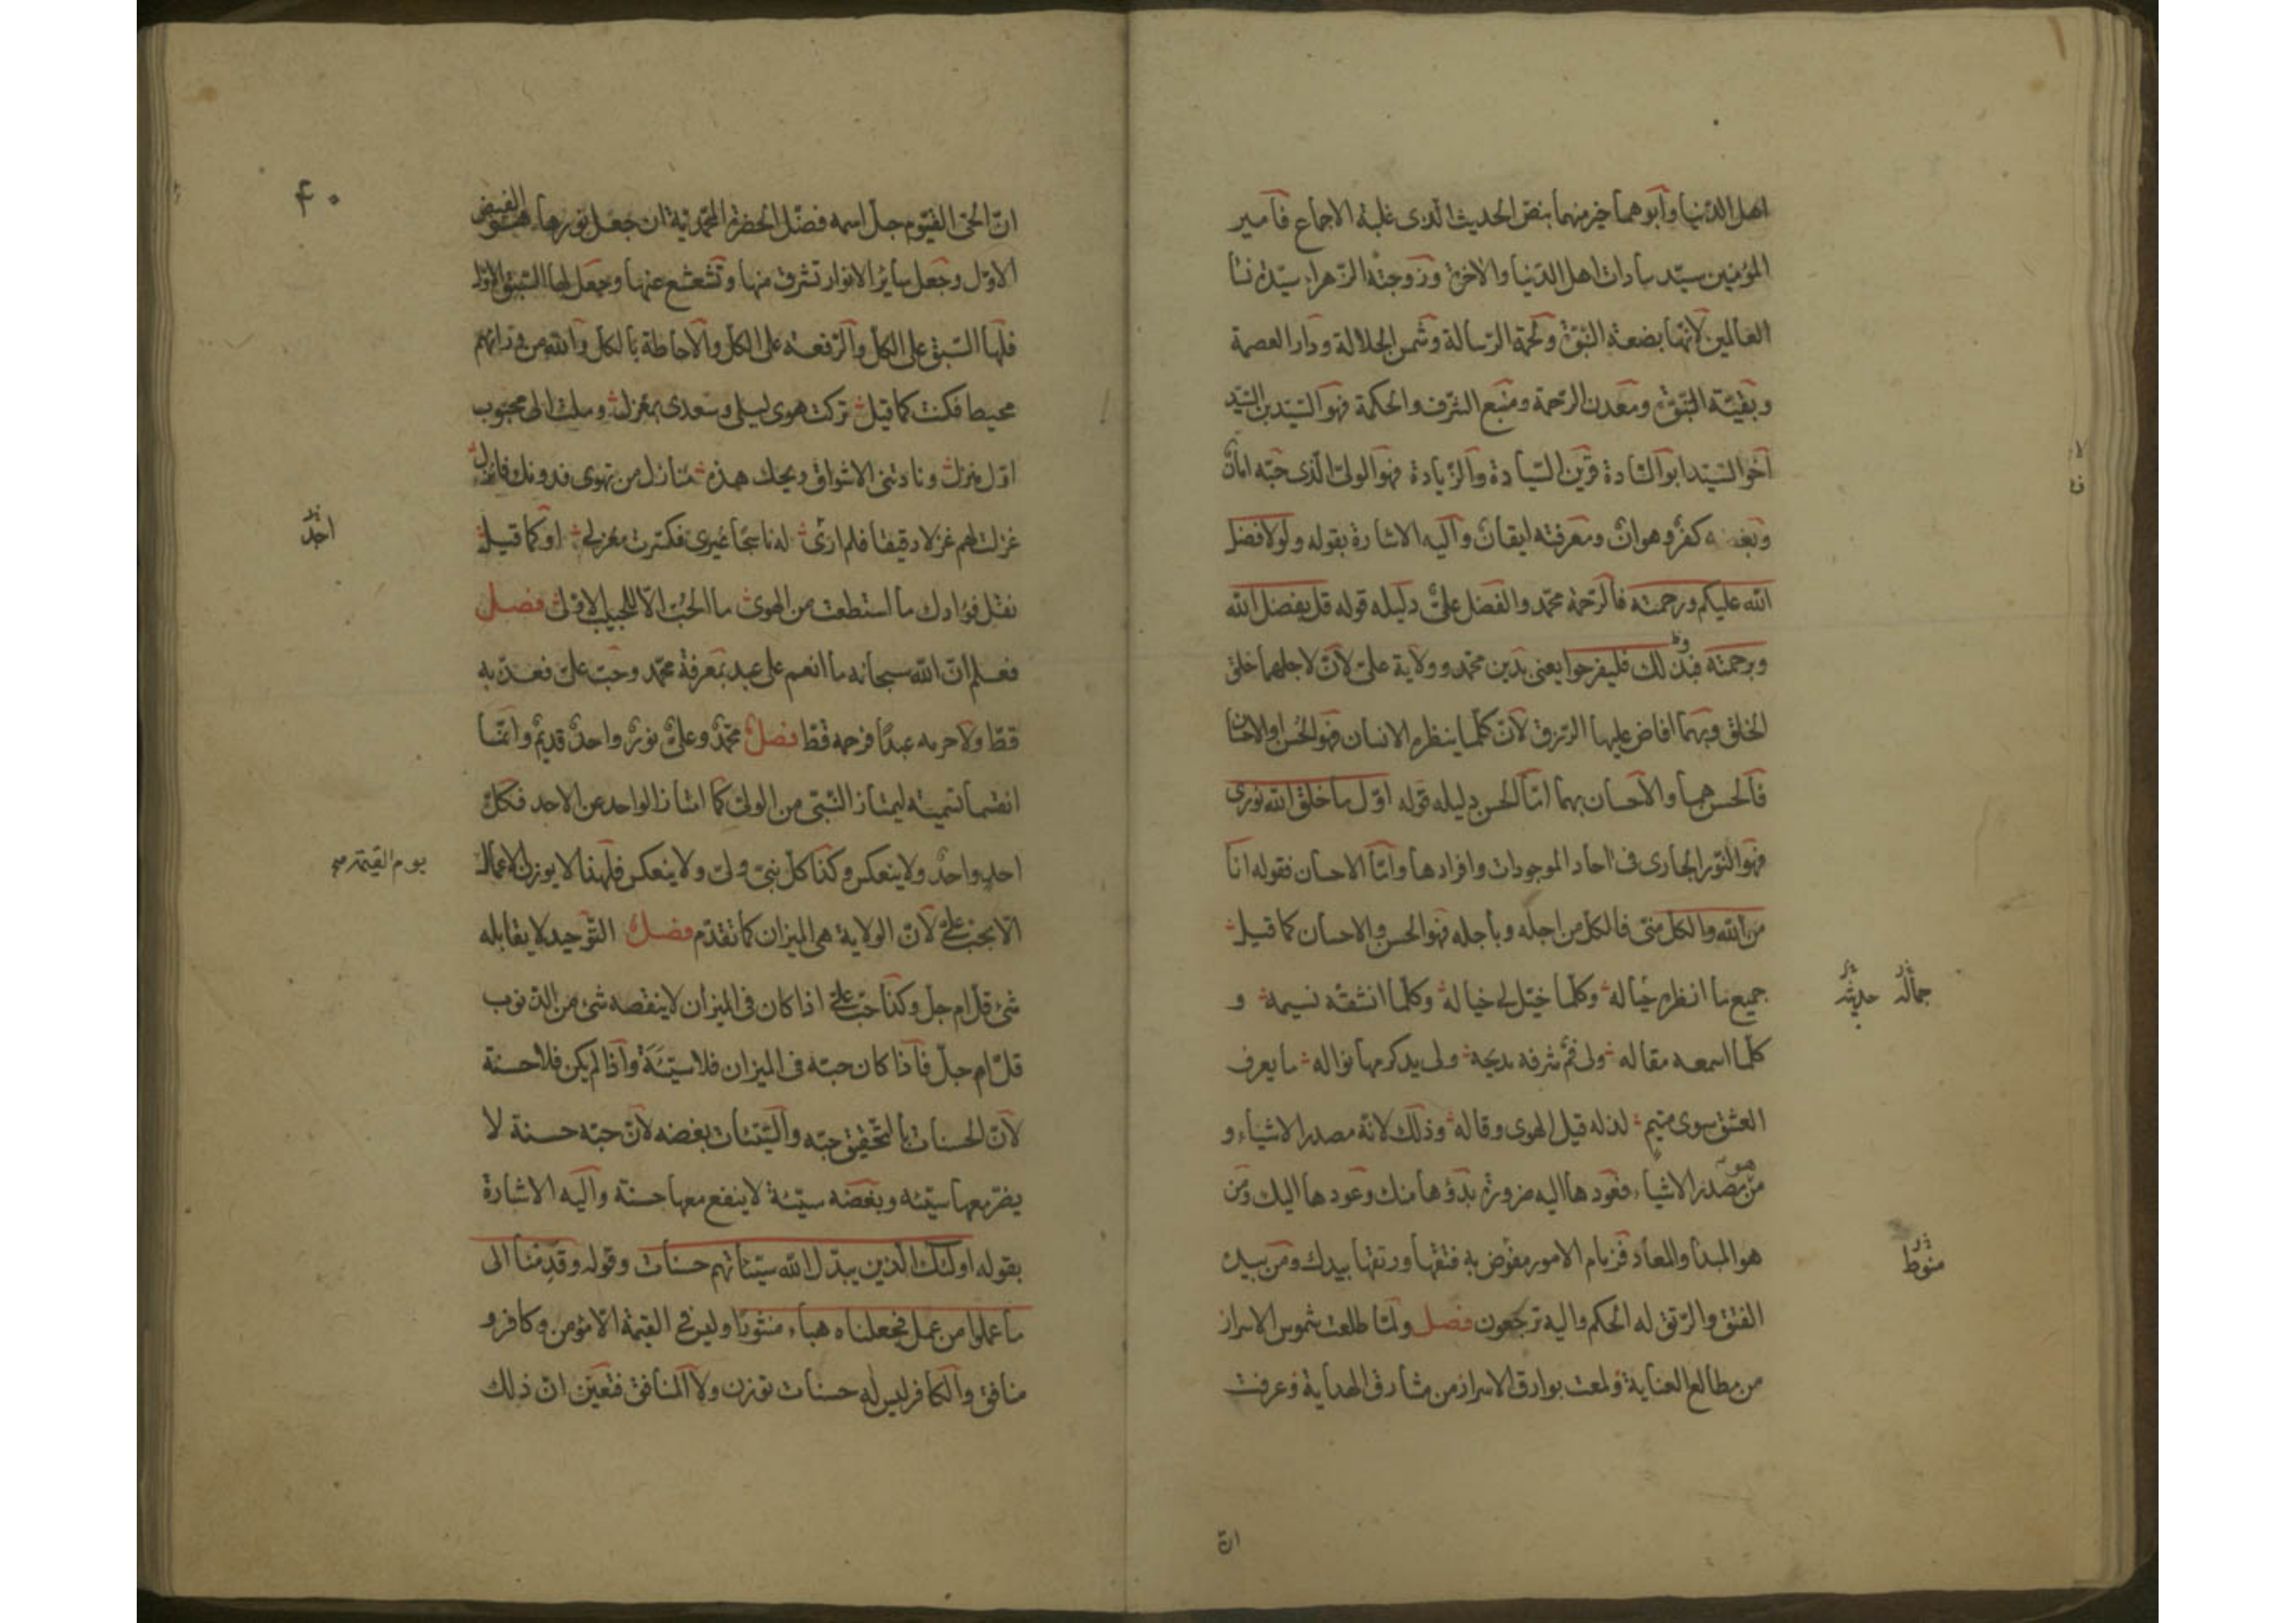 اهل الدنيا وأبوهما خير منهما بنص الحديث الذى عليه الاجماع فأمير
المؤمنين سيّد سادات اهل الدّنيا والاخرة وزوجته الزّهراء سيّدة نسا
العالمين لانّها بضعة النبوّة ولحمة الرّسالة وشمس الجلالة ودار العصمة
وبقيّة النبوّة ومعدن الرّحمة ومنبع الشّرف والحكمة فهو السّيّد بن السّيّد
أخو السّيّد ابو السّادة قرين السّيادة والزّيادة فهو الولىّ الّذى حبّه امانٌ
وبغضه كفرٌ وهوانٌ ومعرفته ايقانٌ واليه الاشارة بقوله ولولا فضل
الله عليكم ورحمته فالرّحمة محمّد والفضل علىٌّ دليله قوله قل بفضل الله
وبرحمته فبذلك فليفرحوا يعنى بدين محمّد وولاية علىّ لانّ لاجلهما خلق
الخلق وبهما افاض عليها الرّزق لانّ كلّما ينظره الانسان فهو الحُسن او الاحسان
فالحسن هما والاحسان بهما امّا الحسن دليله قوله اوّل ما خلق الله نورى
فهو النّور الجارى فى احاد الموجودات وافرادها وامّا الاحسان فقوله انا
من الله والكلّ منّى فالكلّ من اجله وبأجله فهو الحسن والاحسان كما قيل
جميع ما انظره جماله وكلّما خيّل لى خياله وكلّما انشقه نسيمه و
كلّما اسمعه مقاله ولى فمٌ شرفه مديحه ولى يد كرمها نواله ما يعرف
العشق سوى متيم لذله قيل الهوى وقاله وذلك لانّه مصدر الاشياء و
من هو مصدر الاشياء فعودها اليه ضرورة بدؤها منك وعودها اليك ومن
هو المبدأ والمعاد فزمام الامور مفوّض به فتقها ورتقها بيدك ومن بيده
الفتق والرّتق له الحكم واليه ترجعون فصل ولمّا طلعت شموس الاسرار
من مطالع العناية ولمعت بوارق الاسرار من مشارق الهداية وعرفت
جماله حديثه
منوط
انّ
۴۰
انّ الحىّ القيّوم جلّ اسمه فضّل الحضرة المحمّدية ان جعل نورها هو الفيض
الاوّل وجعل سائر الانوار تشرق منها وتشعشع عنها وجعل لها السّبق الاوّل
فلها السّبق على الكلّ والرّفعة على الكلّ والاحاطة بالكلّ والله من ورائهم
محيط فكنت كما قيل تركت هوى ليلى وسعدى بمعزل وملت الى محبوب
اوّل منزل ونادتنى الاشواق ويحك هذه منازل من تهوى فدونك فانزل
غزلت لهم غزلا دقيقا فلم ارى له ناسجا غيرى فكسّرت مغزلى او كما قيل
نقّل فؤادك ما استطعت من الهوى ما الحُبّ الّا للحبيب الاوّل فصل
فعلم انّ الله سبحانه ما انعم على عبد بمعرفة محمّد وحبّ علىّ فعذّبه
قطّ ولا حرمه عبدًا فرحمه قطّ فصل محمّدٌ وعلىٌّ نورٌ واحدٌ قديمٌ وانّما
انقسما تسمية ليمتاز النّبىّ من الولىّ كما امتاز الواحد عن الاحد فكلّ
احدٍ واحدٌ ولا ينعكس وكذا كلّ نبىّ ولىّ ولا ينعكس فلهذا لا يوزن الاعمال
الّا بحبّ علىّ لانّ الولاية هى الميزان كما تقدّم فصل التّوحيد لا يقابله
شىءٌ قلّ ام جلّ وكذا حبّ علىّ اذا كان فى الميزان لا ينقصه شىءٌ من الذّنوب
قلّ ام جلّ فاذا كان حبّه فى الميزان فلا سيّئةَ واذا لم يكن فلا حسنة
لانّ الحسنات بالتّحقيق حبّه والسّيّئات بغضه لانّ حبّه حسنة لا
يضرّ معها سيّئه وبغضه سيّئة لا ينفع معها حسنة واليه الاشارة
بقوله اولئك الّذين يبدّل الله سيّئاتهم حسنات وقوله وقدمنا الى
ما عملوا من عمل فجعلناه هباء منثورًا وليس فى القيمة الّا مؤمن وكافر و
منافق والكافر ليس له حسنات توزن ولا المنافق فتعيّن انّ ذلك
يوم القيمة